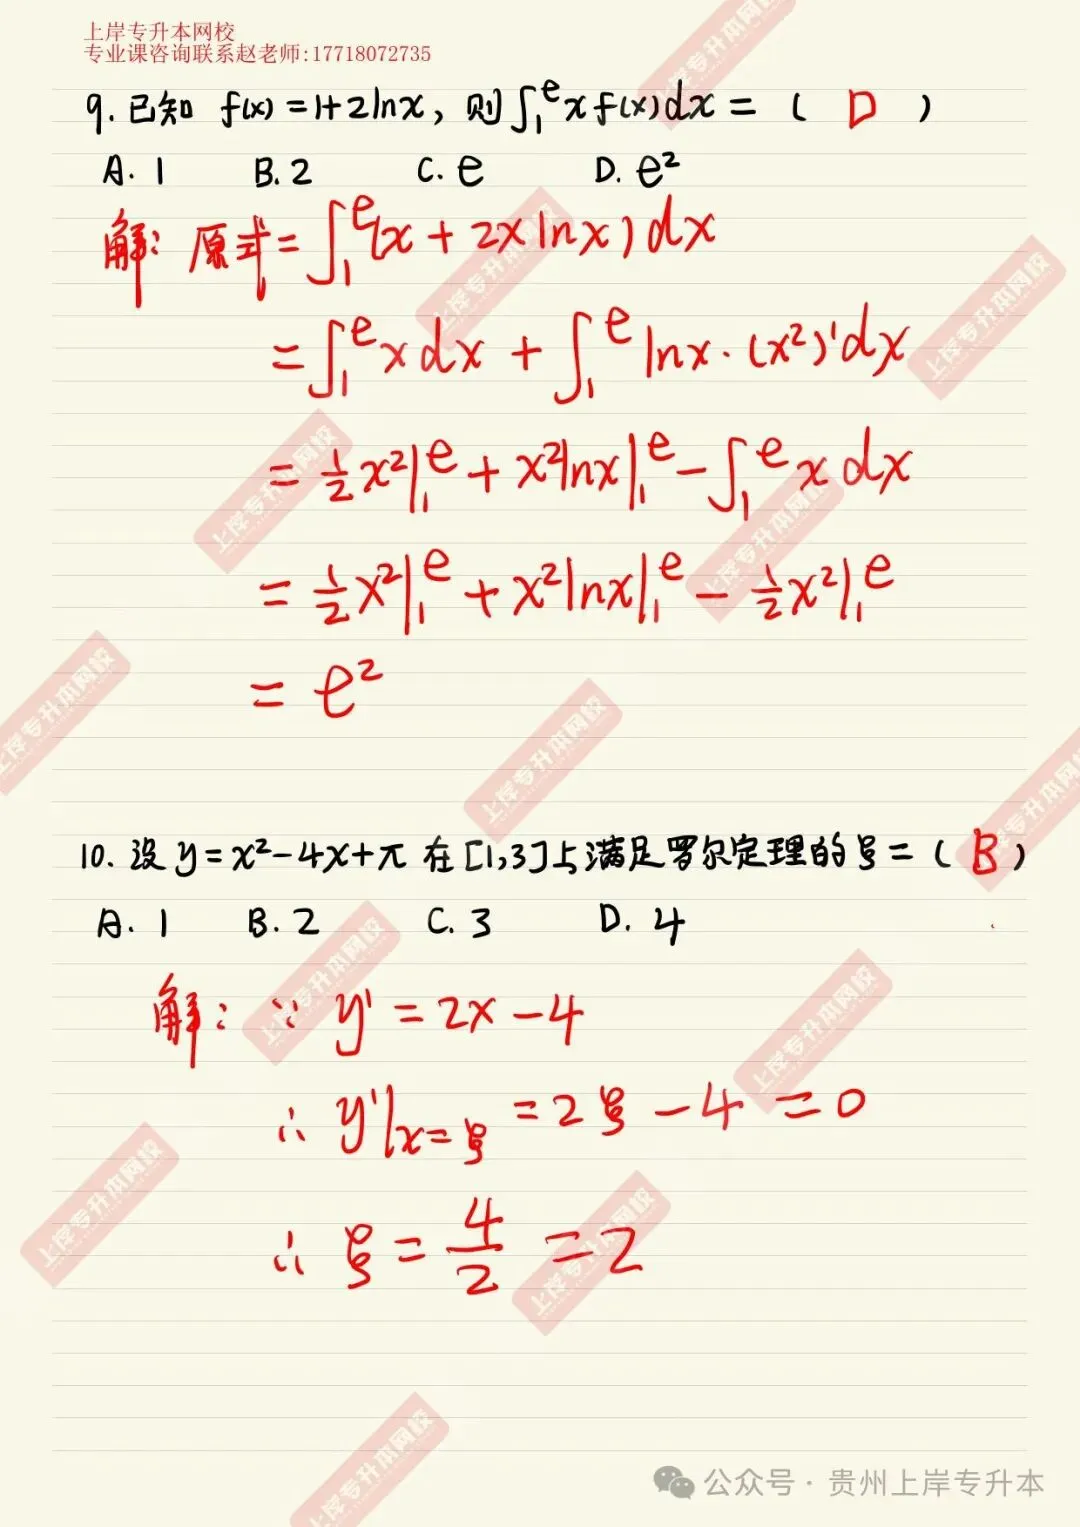 上岸专升本网校
专业课咨询联系赵老师:17718072735
9. 已知 f(x)=1+2lnx, 则∫₁ᵉxf(x)dx=( D )
A. 1 B. 2 C. e D. e²
解: 原式=∫₁ᵉ(x+2xlnx)dx
=∫₁ᵉxdx+∫₁ᵉlnx·(x²)'dx
=½x²|₁ᵉ+x²lnx|₁ᵉ-∫₁ᵉxdx
=½x²|₁ᵉ+x²lnx|₁ᵉ-½x²|₁ᵉ
=e²
10. 设y=x²-4x+π在[1,3]上满足罗尔定理的ξ=( B )
A. 1 B. 2 C. 3 D. 4
解: ∵ y'=2x-4
∴ y'|x=ξ=2ξ-4=0
∴ ξ=4/2=2
公众号·贵州上岸专升本